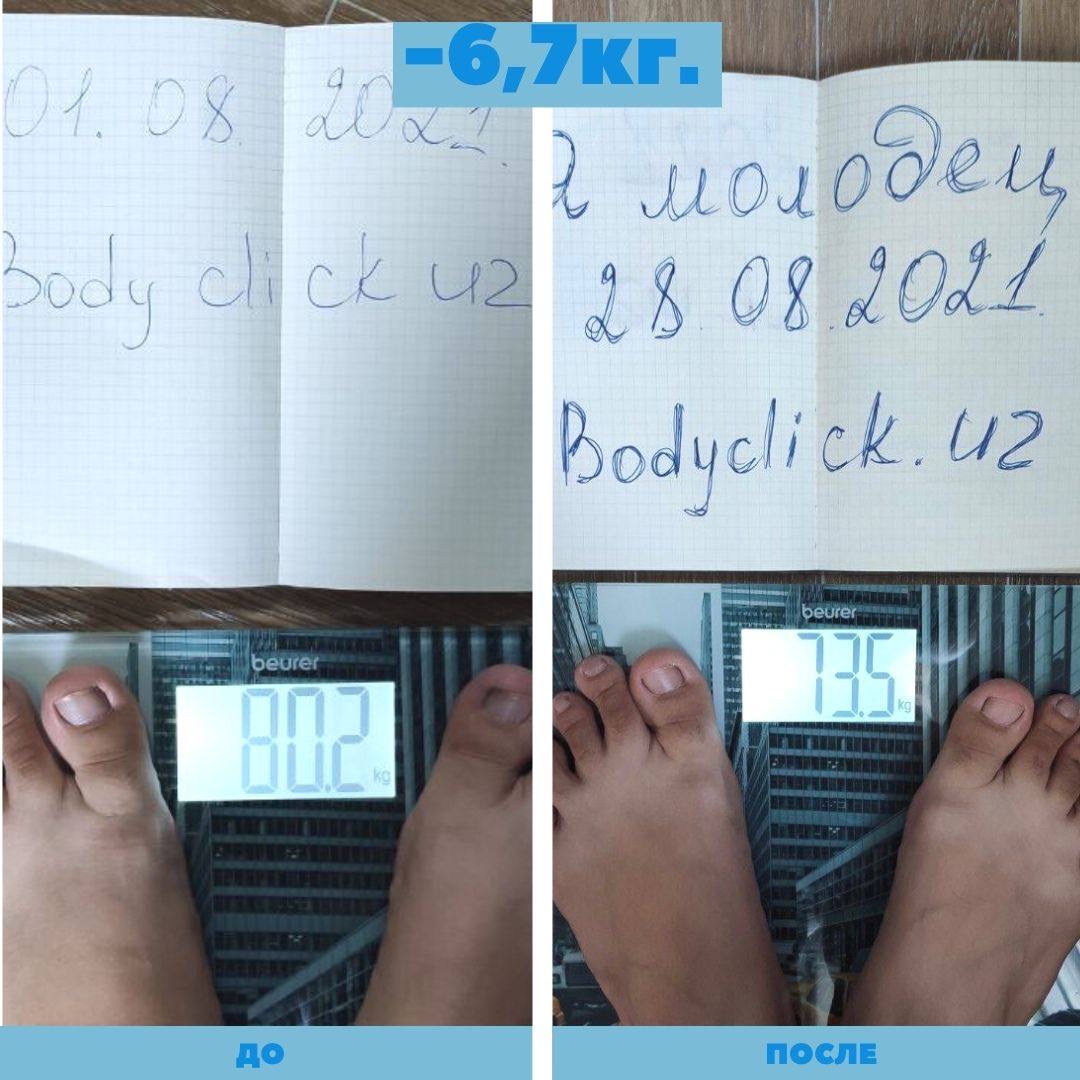 -6,7кг.
01. 08. 2021.
Body click uz
beurer
80.2 kg
ДО
Я молодец
28.08.2021.
Bodyclick.uz
beurer
73.5 kg
ПОСЛЕ